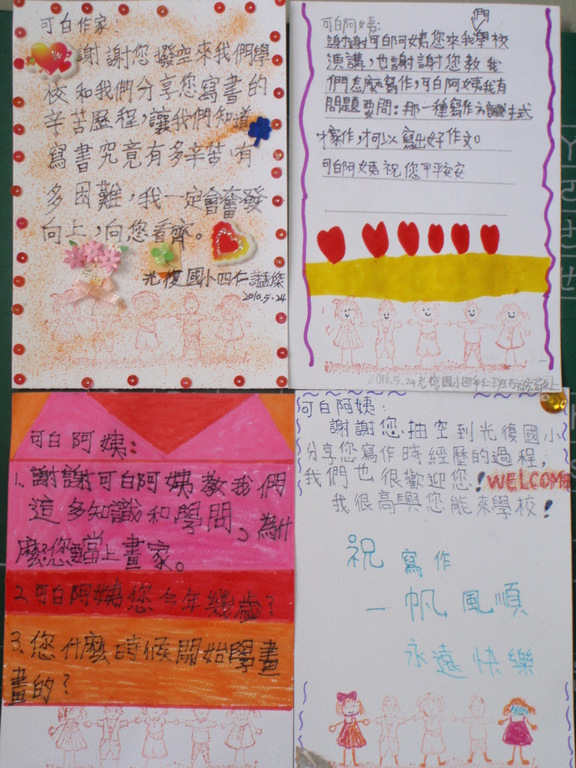 可白作家：
謝謝您撥空來我們學
校和我們分享您寫書的
辛苦歷程，讓我們知道
寫書究竟有多辛苦有
多困難，我一定會奮發
向上，向您看齊。
光復國小四仁
2010.5.24
可白阿姨：
們
謝謝可白阿姨您來我學校
演講，也謝謝您教我
們怎麼寫作，可白阿姨我有
問題要問：那一種寫作方式
才可以寫出好作文。
可白阿姨祝您平平安安
2010.5.24光復國小四年仁班
可白阿姨：
1.謝謝可白阿姨教我們
這多知識和學問、為什
麼您要當上畫家。
2.可白阿姨您今年幾歲？
3.您什麼時候開始學畫
畫的？
可白阿姨：
謝謝您抽空到光復國小
分享您寫作時經歷的過程，
我們也很歡迎您！WELCOME
我很高興您能來學校！
祝寫作
一帆風順
永遠快樂